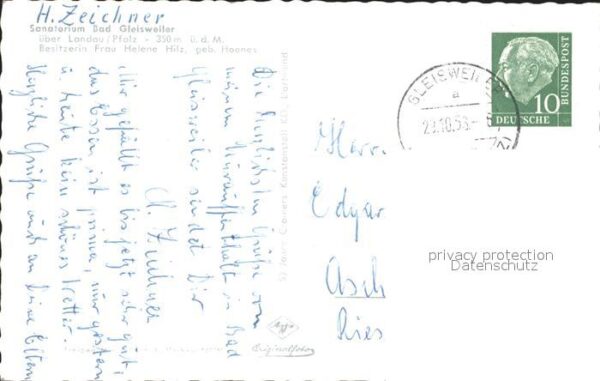 H. Zeichner
Sanatorium Bad Gleisweiler
über Landau/Pfalz - 350 m ü. d. M.
Besitzerin Frau Helene Hilz, geb. Hoenes
Die herzlichsten Grüße von
meinem Kuraufenthalt in Bad
Gleisweiler sendet Dir
H. Zeichner
Mir gefällt es bis jetzt sehr gut,
das Essen ist prima, nur gestern
u. heute kein schönes Wetter.
Herzliche Grüße auch an Deine Eltern
Cramers Kunstanstalt KG, Dortmund
Agfa
Originalfoto
GLEISWEILER
a
10
DEUTSCHE
BUNDESPOST
Herr
Edgar
Asch
Ries
privacy protection
Datenschutz